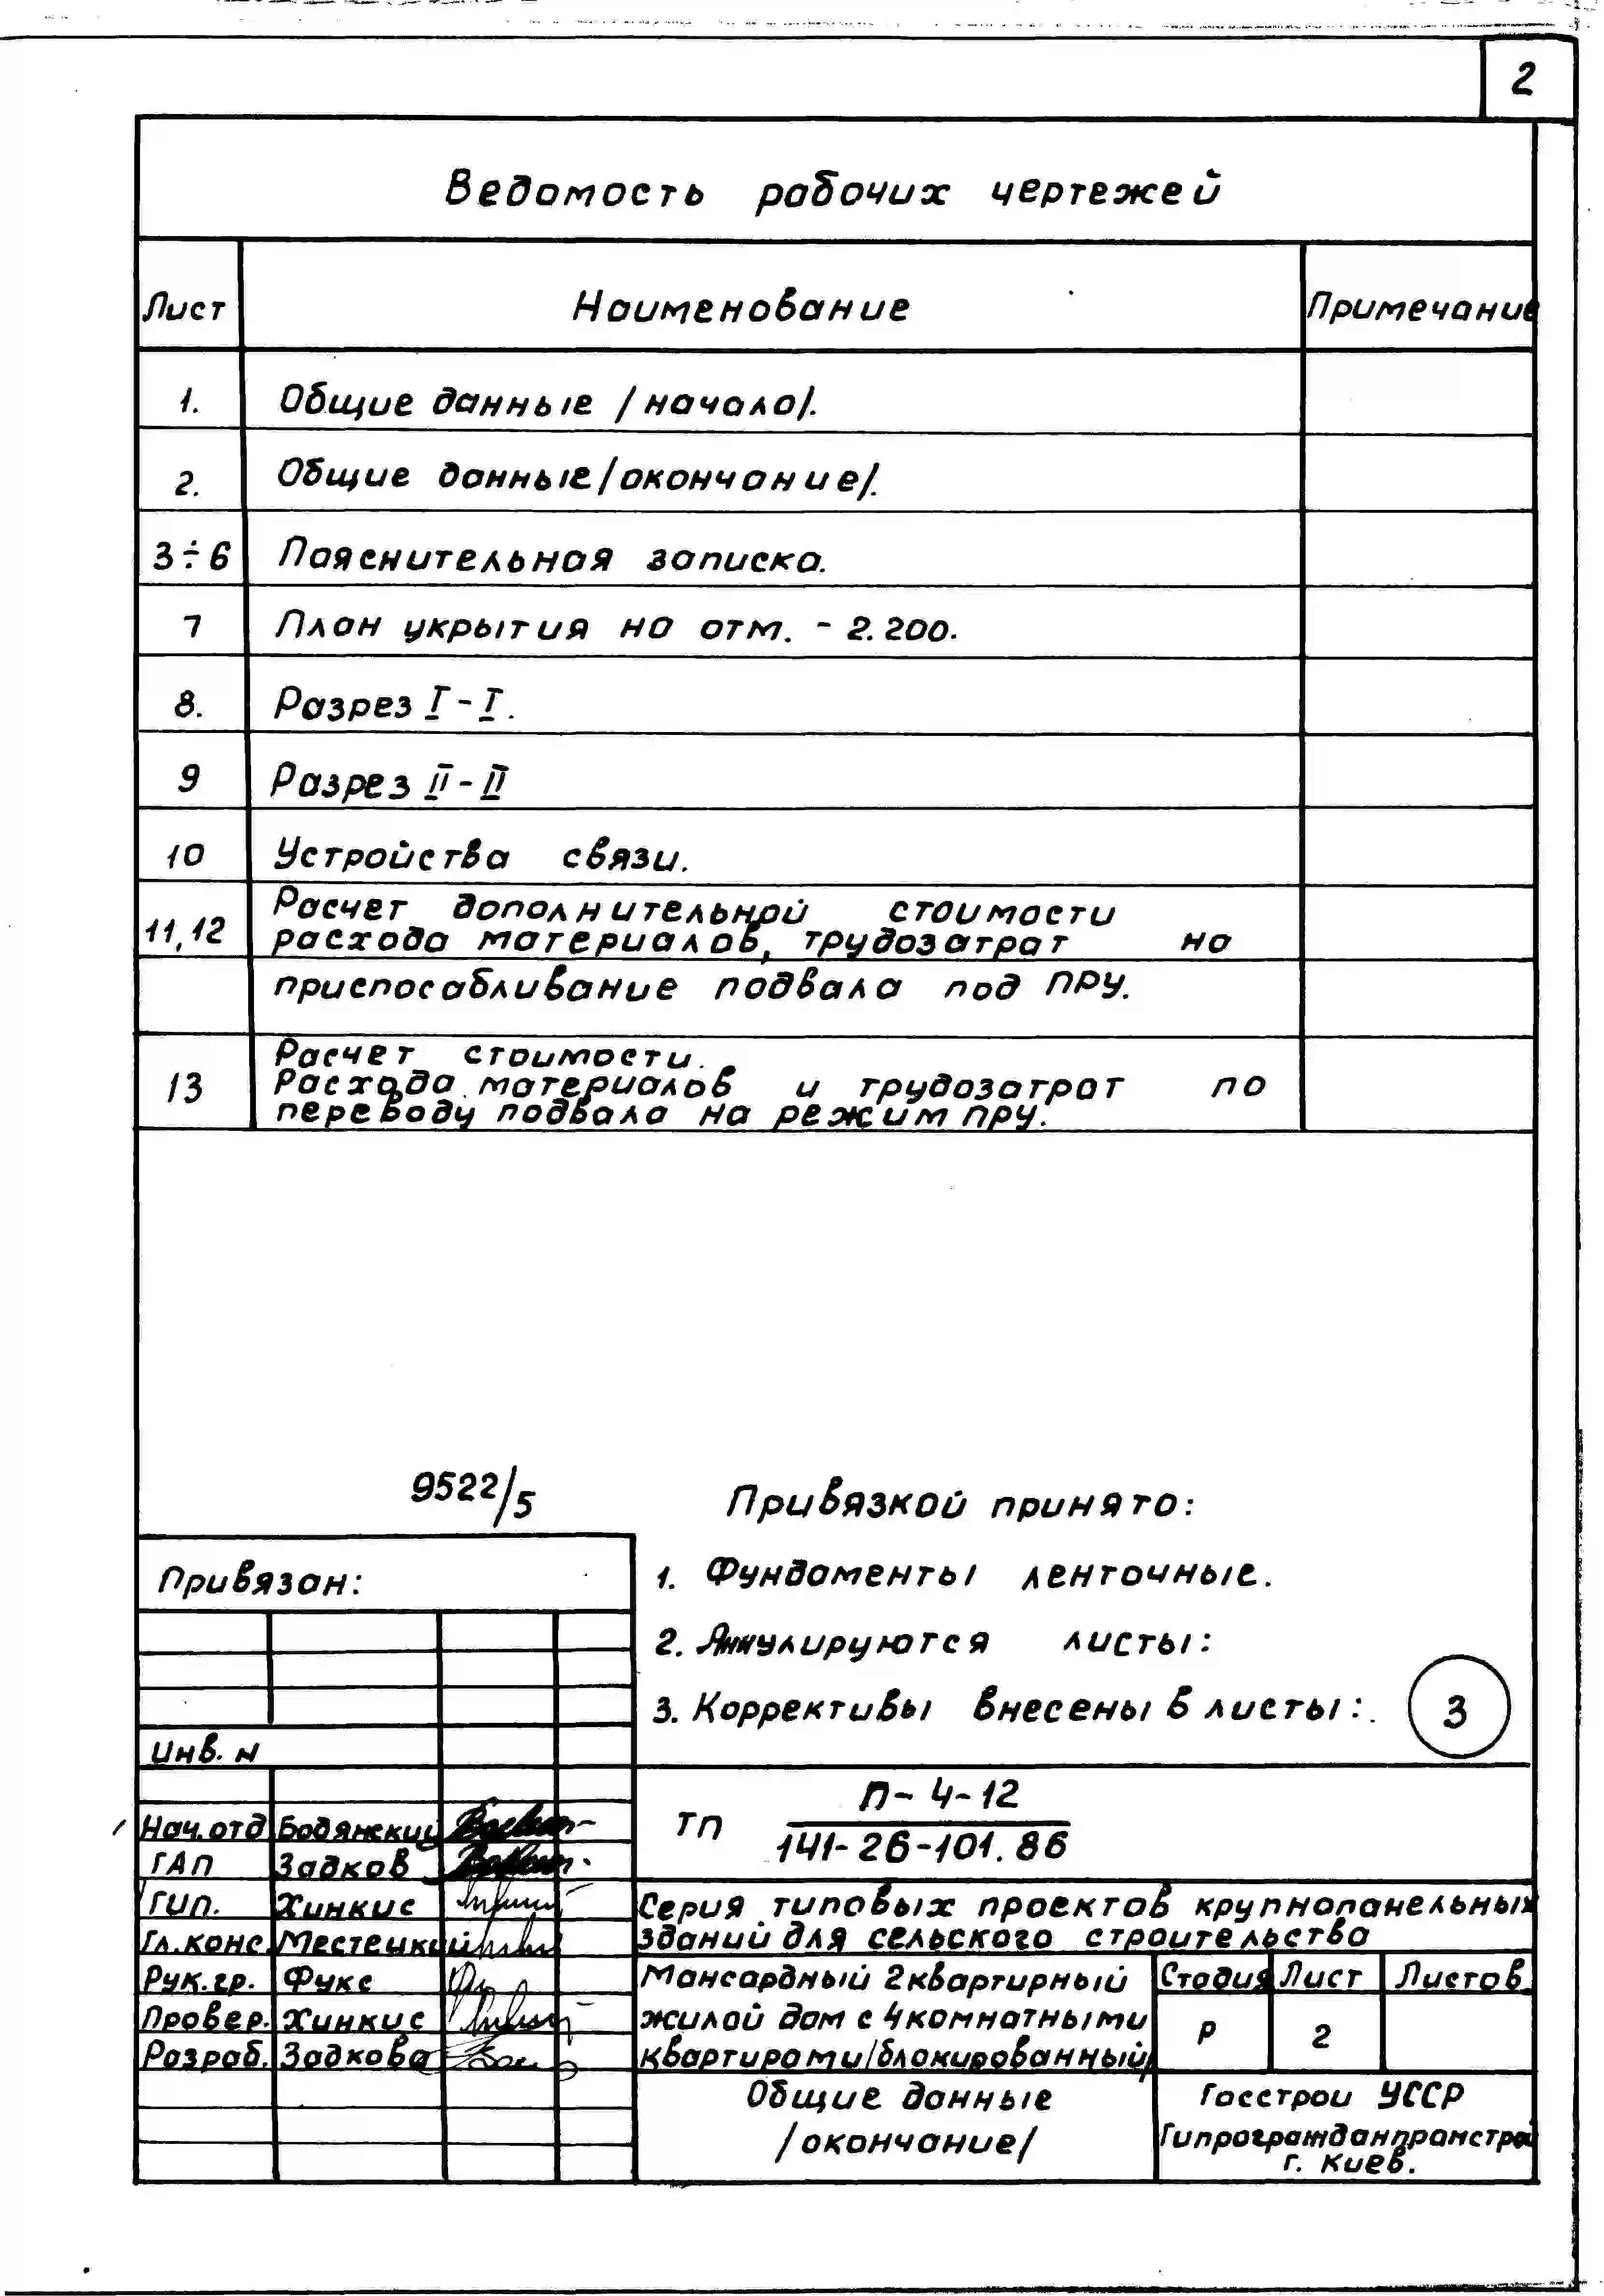 2
Ведомость рабочих чертежей
Лист Наименование Примечание
1. Общие данные /начало/.
2. Общие данные /окончание/.
3÷6 Пояснительная записка.
7 План укрытия на отм. - 2.200.
8. Разрез I-I.
9 Разрез II-II
10 Устройства связи.
11,12 Расчет дополнительной стоимости
расхода материалов, трудозатрат на
приспосабливание подвала под ПРУ.
13 Расчет стоимости.
Расхода материалов и трудозатрат по
переводу подвала на режим ПРУ.
9522/5
Привязкой принято:
1. Фундаменты ленточные.
2. Аннулируются листы:
3. Коррективы внесены в листы:.
3
Привязан:
Инв. N
Нач.отд Бодянский
ГАП Задков
ГИП. Хинкис
Гл.конс. Местецкий
Рук.гр. Фукс
Провер. Хинкис
Разраб. Задкова
ТП П-4-12
141-26-101.86
Серия типовых проектов крупнопанельных
зданий для сельского строительства
Мансардный 2квартирный
жилой дом с 4комнатными
квартирами/блокированный/
Стадия Лист Листов
Р 2
Общие данные
/окончание/
Госстрой УССР
Гипрогражданпромстрой
г. Киев.